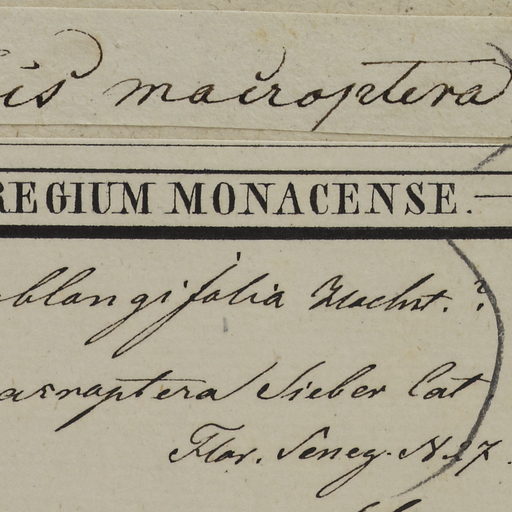 is macroptera
REGIUM MONACENSE.
oblongifolia Hochst. ?
acroptera Sieber Cat
Flor. Seneg. N. 27.